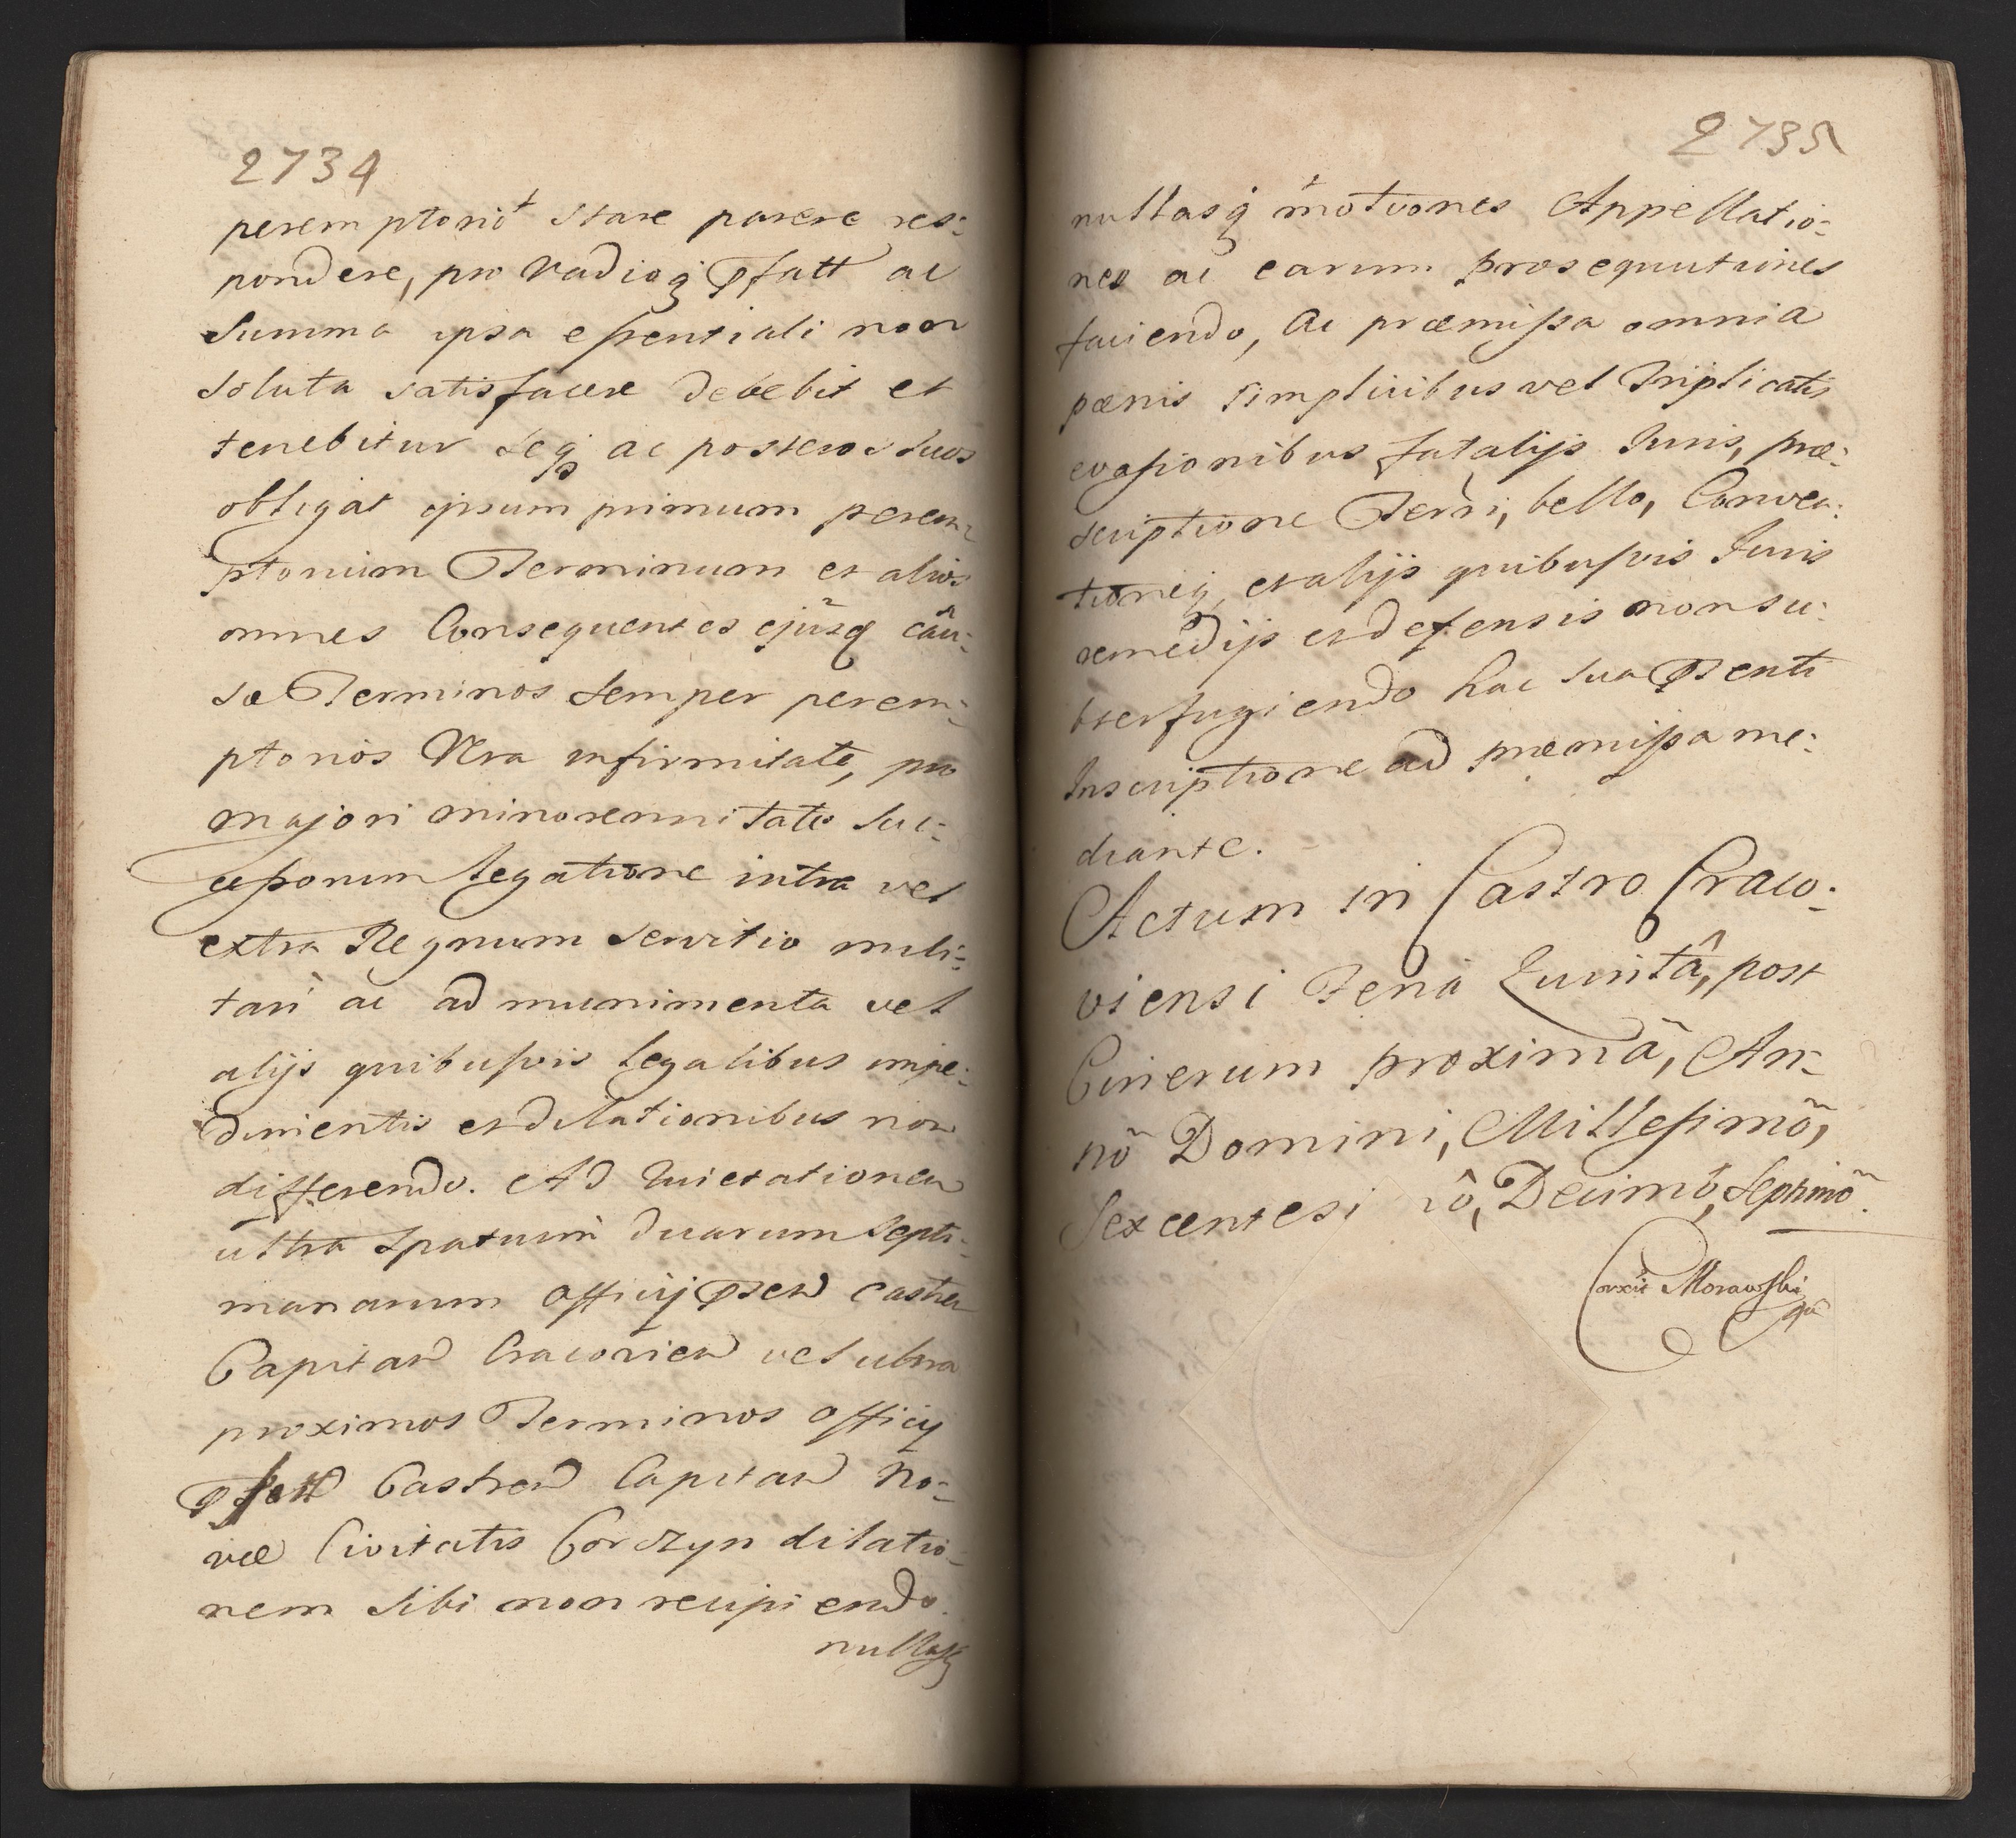 2734
peremptorió stare parere res:
pondere, pro Vadioq́ pfatt ac
Summa ipsa essentiali non
soluta satisfacere debebit et
tenebitur seq́ ac posteros suos
obligat ipsum primum perem
ptorium Terminum et alios
omnes Consequentes ejusq caũ:
sæ Terminos semper perem:
ptorios Vera infirmitate, pro
majori minorennitate Suc:
cessorum legatione intra vel
extra Regnum servitio mili:
tari ac ad munimenta vel
alijs quibusvis legalibus impe:
dimentis et dilationibus non
differendo. Ad Quietationem
ultra Spatium duarum Septi:
manarum officij psen Castren
Capitan Cracovien vel ultra
proximos Terminos officij
Castren Capitan No:
væ Civitatis Corczyn dilatio:
nem Sibi non recipiendo.
nullasq́
2735
nullasq́ motiones Appellatio:
nes ac earum prosequutiones
faciendo, Ac præmissa omnia
pœnis simplicibus vel triplicatis
evasionibus fatalijs Juris, præ:
scriptione Terri, bello, Conven:
tioneq́, et alijs quibusvis Juris
remedijs et defensis non su:
bterfugiendo hac sua psenti
Inscriptione ad præmissa me:
diante.
Actum in Castro Craco:
viensi Feria Quintâ, post
Cinerum proximâ, An:
nõ Domini, Millesimõ,
Sexcentesi mô, Decimô, Septimõ.
Morawski